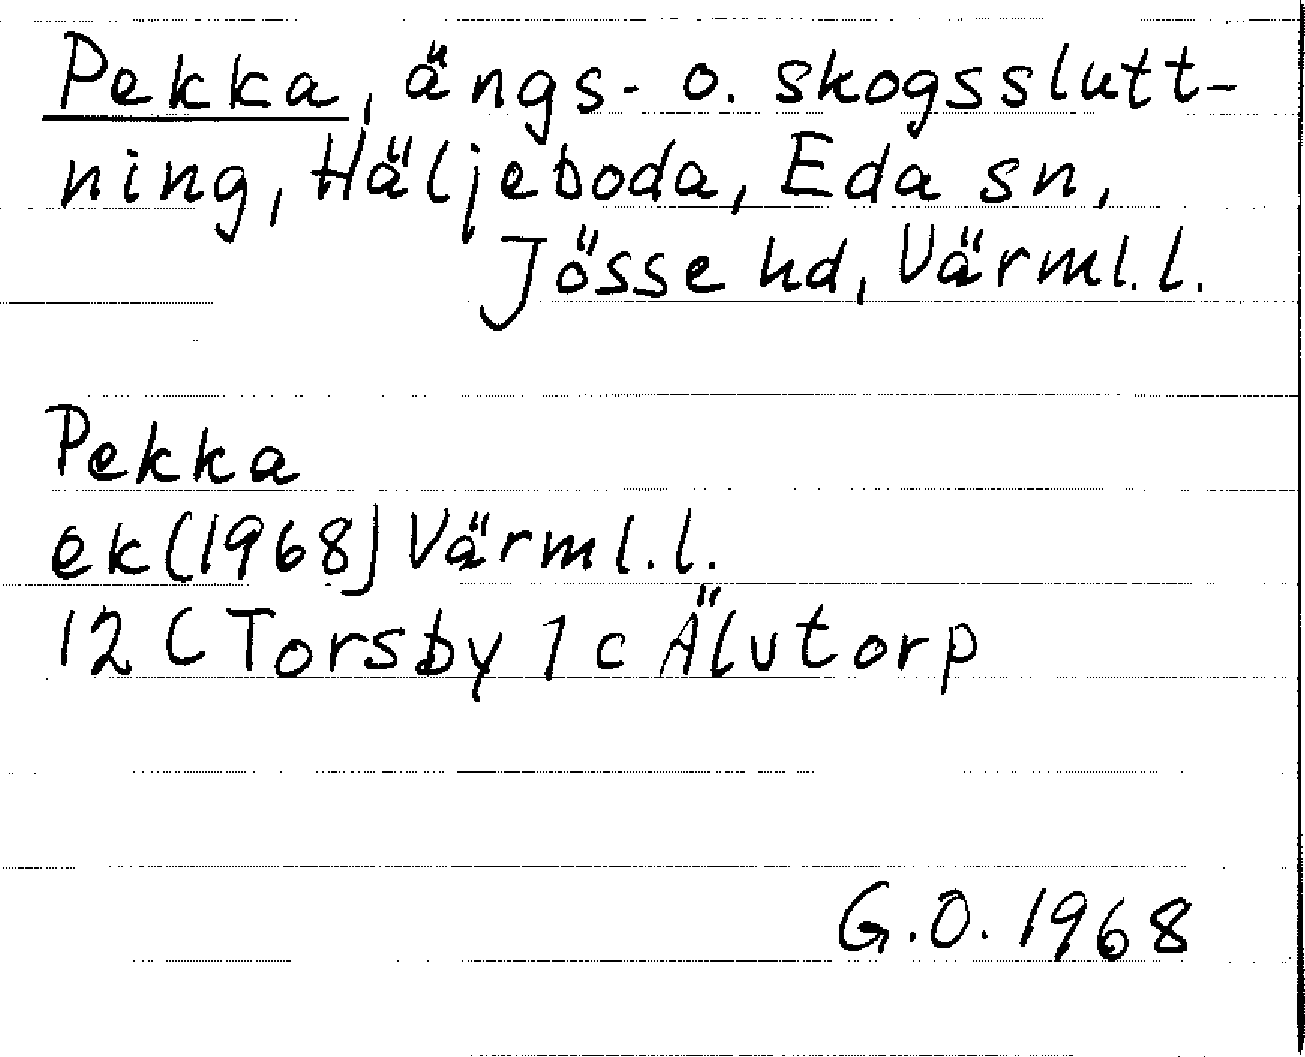 Pekka, ängs- o. skogsslutt-
ning, Häljeboda, Eda sn,
Jösse hd, Värml. l.
Pekka
ek (1968) Värml. l.
12 C Torsby 1 c Älvtorp
G.O. 1968